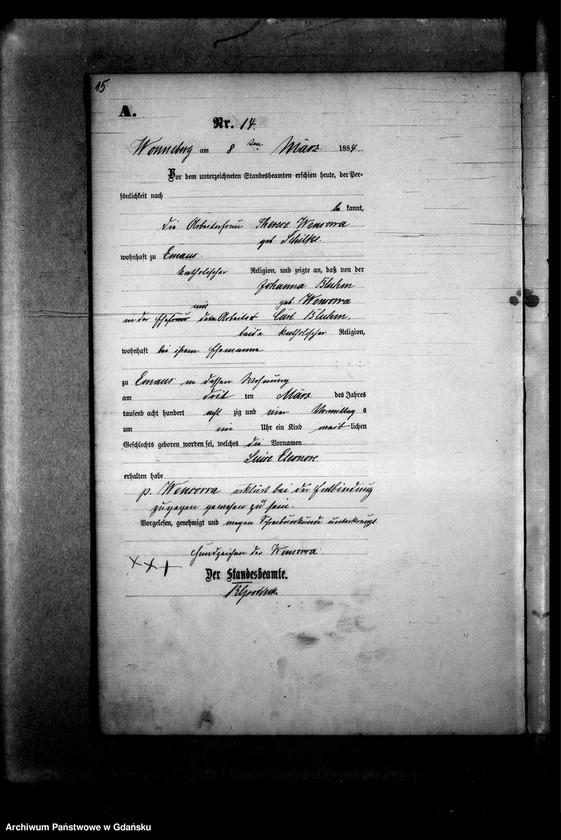 15
A.
Nr. 14.
Wonneberg am 8 ten März 1884
Vor dem unterzeichneten Standesbeamten erschien heute, der Per-
sönlichkeit nach
be kannt,
die Arbeiterfrau Therese Wensorra
geb Schulke
wohnhaft zu Emaus
katholischer Religion, und zeigte an, daß von der
Johanna Bluhm
geb Wensorra
der Ehefrau des Arbeiter Carl Bluhm,
beide katholischer Religion,
wohnhaft bei ihrem Ehemanne
zu Emaus in dessen Wohnung
am drei ten März des Jahres
tausend acht hundert acht zig und vier Vormittag s
um Uhr ein Kind weib lichen
Geschlechts geboren worden sei, welches die Vornamen
Luise Eleonore
erhalten habe
p. Wensorra erklärt bei der Entbindung
zugegen gewesen zu sein.
Vorgelesen, genehmigt und wegen Schreibunkunde unterkreuzt
Handzeichen der Wensorra
+++
Der Standesbeamte.